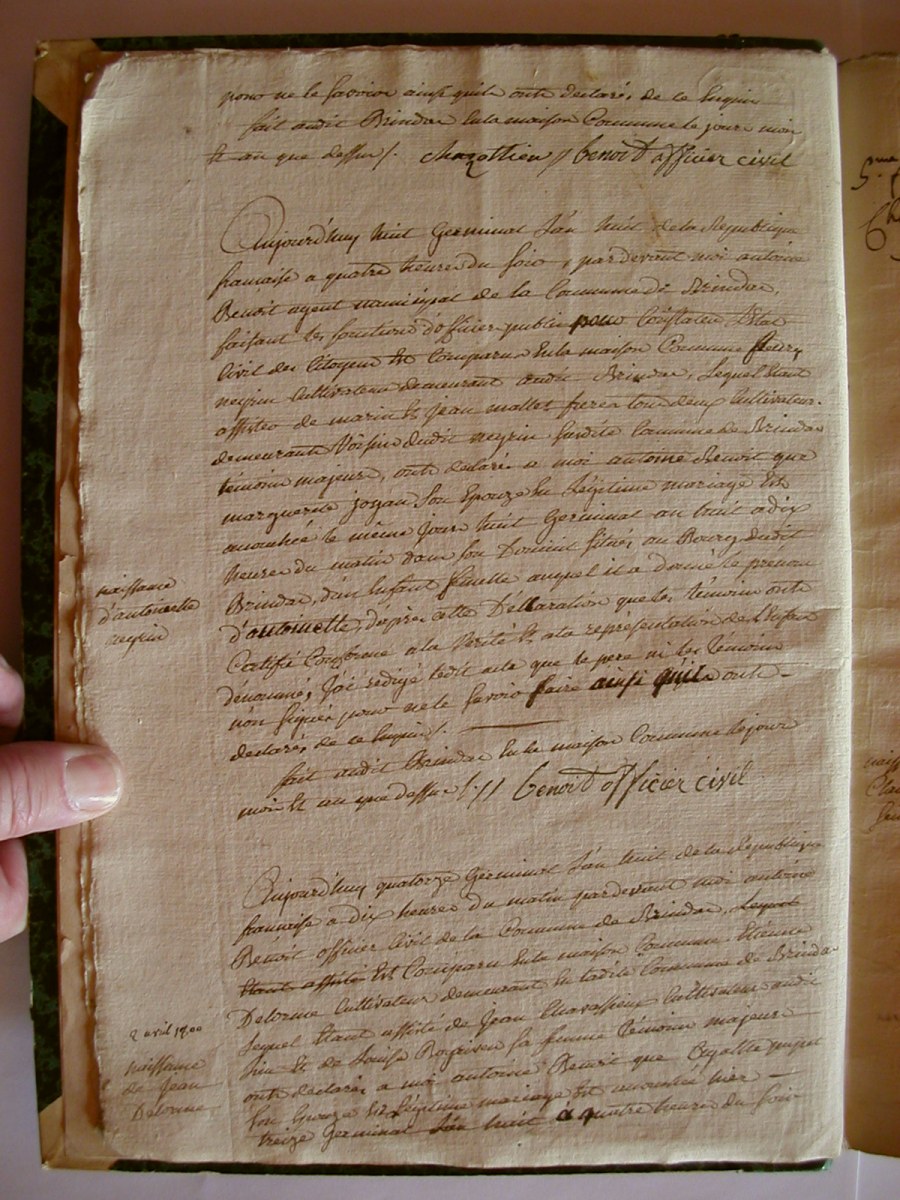 pour ne le savoire ainsi quils onts declarés de ce Enquis
fait audit Brindas En la maison Commune le jours mois
Et an que dessus /. chazottien // benoit officier civil
Aujourd'huy huit Germinal L'an huit de la Republique
francaise a quatre heures du soir, par devant moi antoine
Benoit agent municipal de la Commune de Brindas,
faisant les fonctions d'officier public pour Constater L'Etat
Civil des Citoyens Est Comparus En la maison Commune fleury
neyrin Cultivateur demeurant audit Brindas, Lequel Etant
assistés de marin Et jean mallet freres tous deux Cultivateurs
demeurants Voisins dudit neyrin susdite Commune de Brindas
témoins majeurs, onts declarés a moi antoine Benoit que
marguerite joyan son Epouze En Légitime mariage Est
accouchée le même jour huit Germinal an huit a dix
heures du matin dans son Domicil situés au Bourg dudit
Brindas, d'un Enfant femelle auquel il a donné le prenom
d'antoinette, d'après cette Déclaration que les témoins onts
Certifié Conforme a la Verité Et a la représentation de L'Enfant
dénommé, j'ai redigé ledit acte que le pere ni les témoins
n'on signés pour ne le savoir faire ainsi quils onts
declarés de ce Enquis /.
fait audit Brindas En la maison Commune le jour
mois Et an que dessus /. // benoit officier civil
naissance
d'antoinette
neyrin
Aujourd'huy quatorze Germinal L'an huit de la Republique
francaise a dix heures du matin par devant moi antoine
Benoit officier Civil de la Commune de Brindas, Lequel
Etant assisté Est Comparu En la maison Commune Etienne
Delorme Cultivateur demeurant En ladite Commune de Brindas
Lequel Etant assisté de Jean Chavassieux Cultivateur audit
lieu Et de Louise sa femme témoins majeurs
onts declarés a moi antoine Benoit que
son Epouze En Légitime mariage Est accouchée hier
treize Germinal L'an huit a quatre heures du soir
2 avril 1800
naissance
de Jean
Delorme
5me